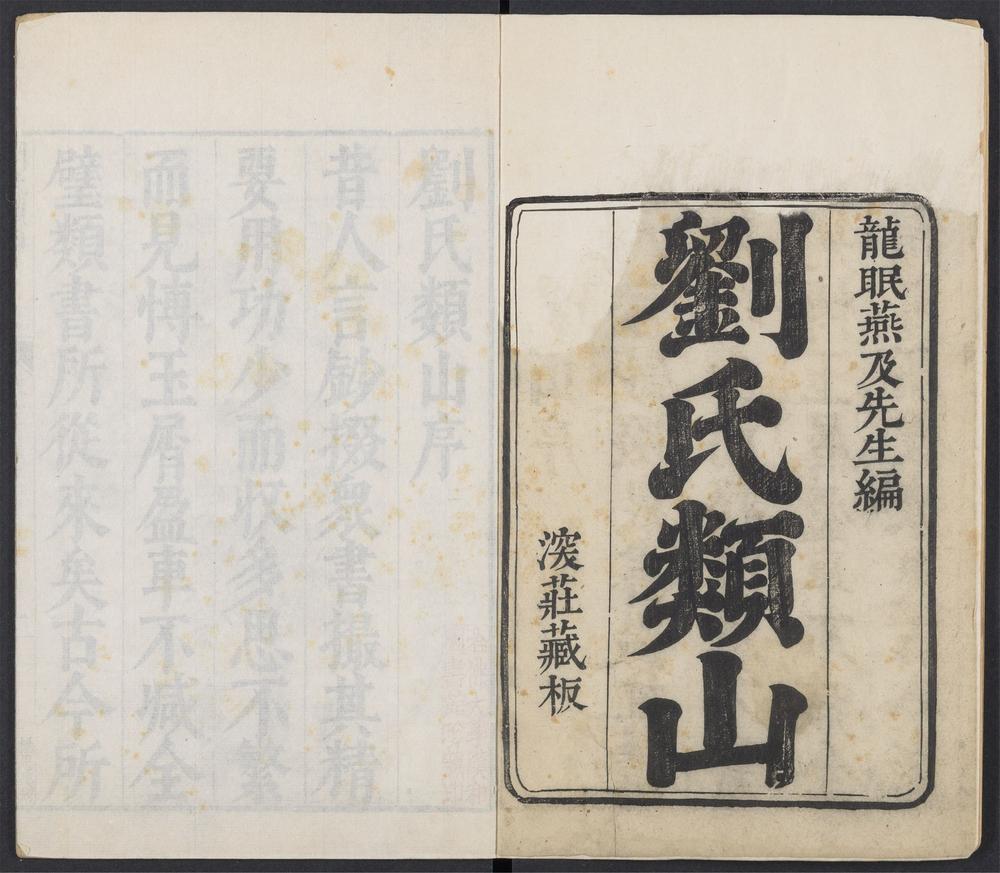 龍眠燕及先生編
劉氏類山
湥莊藏板
劉氏類山序
昔人言鈔掇衆書撮其精
要用功少而収多思不繁
而見博玉屑盈車不臧全
璧類書所從來矣古今所